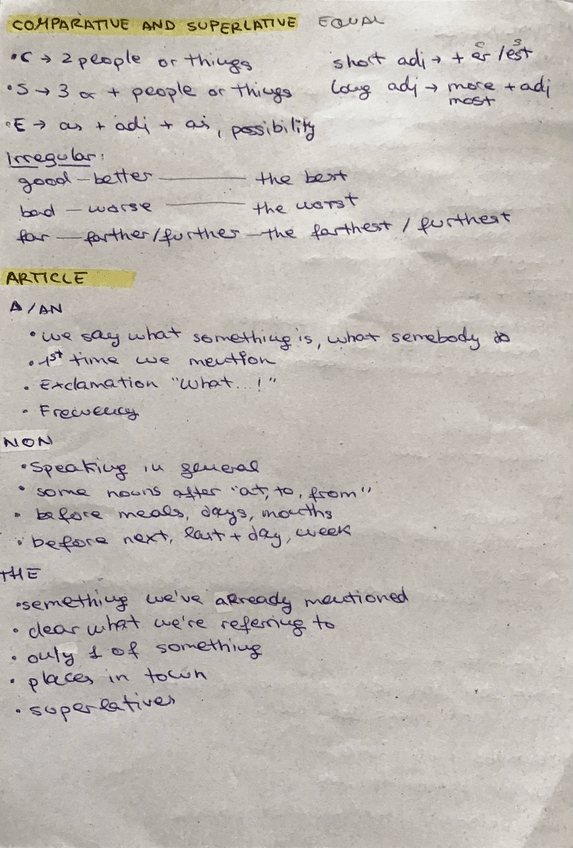 COMPARATIVE AND SUPERLATIVE EQUAL
•C → 2 people or things
short adj → + er / est
C S
•S → 3 or + people or things
long adj → more + adj
most
•E → as + adj + as, possibility
Irregular:
good – better ——— the best
bad – worse ——— the worst
far — farther/further — the farthest / furthest
ARTICLE
A/AN
•we say what something is, what semebody do
•1st time we mention
• Exclamation "What...!"
• Frecuency
NON
•Speaking in general
• some nouns after "at, to, from"
• before meals, days, months
• before next, last + day, week
THE
•semething we've already mentioned
• clear what we're referring to
• only 1 of something
• places in town
• superlatives